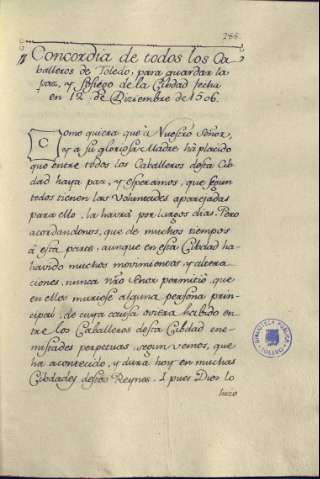 286.
Concordia de todos los Ca-
balleros de Toledo, para guardar la
paz, y sosiego de la Cibdad fecha
en 12 de Diciembre de 1506.
Como quiera que à Nuestro Señor,
y a su gloriosa Madre hà placido
que entre todos los Caballeros desta Cib
dad haya paz, y esperamos, que segun
todos tienen las Voluntades aparejadas
para ello, la havrà por largos dias. Pero
acordandonos, que de muchos tiempos
à esta parte, aunque en esta Cibdad ha
havido muchos movimientos, y altera
ciones, nunca nro Señor permitiò, que
en ellos muriese alguna persona prin-
cipal, de cuya causa oviera habido en
tre los Caballeros desta Cibdad ene-
mistades perpetuas, segun vemos, que
ha acontecido, y dura hoy en muchas
Cibdades destos Reynos. I pues Dios lo
hizo
BIBLIOTECA PUBLICA
TOLEDO